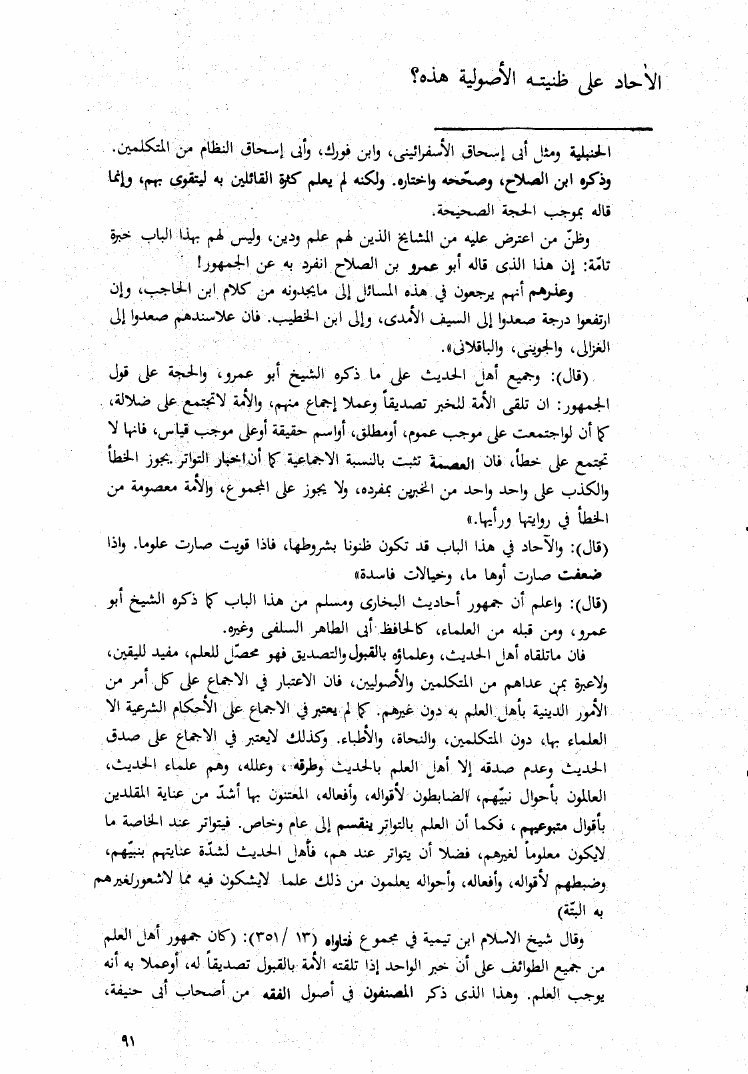 الأحاد على ظنيته الأصولية هذه؟
الحنبلية ومثل أبى إسحاق الأسفرائينى، وابن فورك، وأبى إسحاق النظام من المتكلمين.
وذكره ابن الصلاح، وصحّحه واختاره. ولكنه لم يعلم كثرة القائلين به ليتقوى بهم، وإنما
قاله بموجب الحجة الصحيحة.
وظنّ من اعترض عليه من المشايخ الذين لهم علم ودين، وليس لهم بهذا الباب خبرة
تامّة: إن هذا الذى قاله أبو عمرو بن الصلاح انفرد به عن الجمهور!
وعذرهم أنهم يرجعون في هذه المسائل إلى مايجدونه من كلام ابن الحاجب، وإن
ارتفعوا درجة صعدوا إلى السيف الأمدى، وإلى ابن الخطيب. فان علاسندهم صعدوا إلى
الغزالى، والجوينى، والباقلانى».
(قال): وجميع أهل الحديث على ما ذكره الشيخ أبو عمرو، والحجة على قول
الجمهور: ان تلقى الأمة للخبر تصديقاً وعملا إجماع منهم، والأمة لاتجتمع على ضلالة،
كما أن لواجتمعت على موجب عموم، أومطلق، أواسم حقيقة أوعلى موجب قياس، فانها لا
تجتمع على خطأ، فان العصمة تثبت بالنسبة الاجماعية كما أن اخبار التواتر يجوز الخطأ
والكذب على واحد واحد من المخبرين بمفرده، ولا يجوز على المجموع، والأمة معصومة من
الخطأ في روايتها ورأيها.»
(قال): والآحاد في هذا الباب قد تكون ظنونا بشروطها، فاذا قويت صارت علوما. واذا
ضعفت صارت أوها ما، وخيالات فاسدة»
(قال): واعلم أن جمهور أحاديث البخارى ومسلم من هذا الباب كما ذكره الشيخ أبو
عمرو، ومن قبله من العلماء، كالحافظ أبى الطاهر السلفى وغيره.
فان ماتلقاه أهل الحديث، وعلماؤه بالقبول والتصديق فهو محصّل للعلم، مفيد لليقين،
ولاعبرة بمن عداهم من المتكلمين والأصوليين، فان الاعتبار في الاجماع على كل أمر من
الأمور الدينية بأهل العلم به دون غيرهم. كما لم يعتبر في الاجماع على الأحكام الشرعية الا
العلماء بها، دون المتكلمين، والنحاة، والأطباء. وكذلك لايعتبر في الاجماع على صدق
الحديث وعدم صدقه إلا أهل العلم بالحديث وطرقه، وعلله، وهم علماء الحديث،
العالمون بأحوال نبيّهم، الضابطون لأقواله، وأفعاله، المعتنون بها أشدّ من عناية المقلدين
بأقوال متبوعيهم، فكما أن العلم بالتواتر ينقسم إلى عام وخاص. فيتواتر عند الخاصة ما
لايكون معلوماً لغيرهم، فضلا أن يتواتر عند هم، فأهل الحديث لشدّة عنايتهم بنبيّهم،
وضبطهم لأقواله، وأفعاله، وأحواله يعلمون من ذلك علما لايشكون فيه مما لاشعورلغيرهم
به البتّة)
وقال شيخ الاسلام ابن تيمية في مجموع فتاواه (١٣ /٣٥١): (كان جمهور أهل العلم
من جميع الطوائف على أن خبر الواحد إذا تلقته الأمة بالقبول تصديقاً له، أوعملا به أنه
يوجب العلم. وهذا الذى ذكر المصنفون في أصول الفقه من أصحاب أبى حنيفة،
٩١